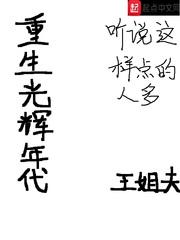 重生光辉年代
听说这
样点的
人多
王姐夫
起点中文网